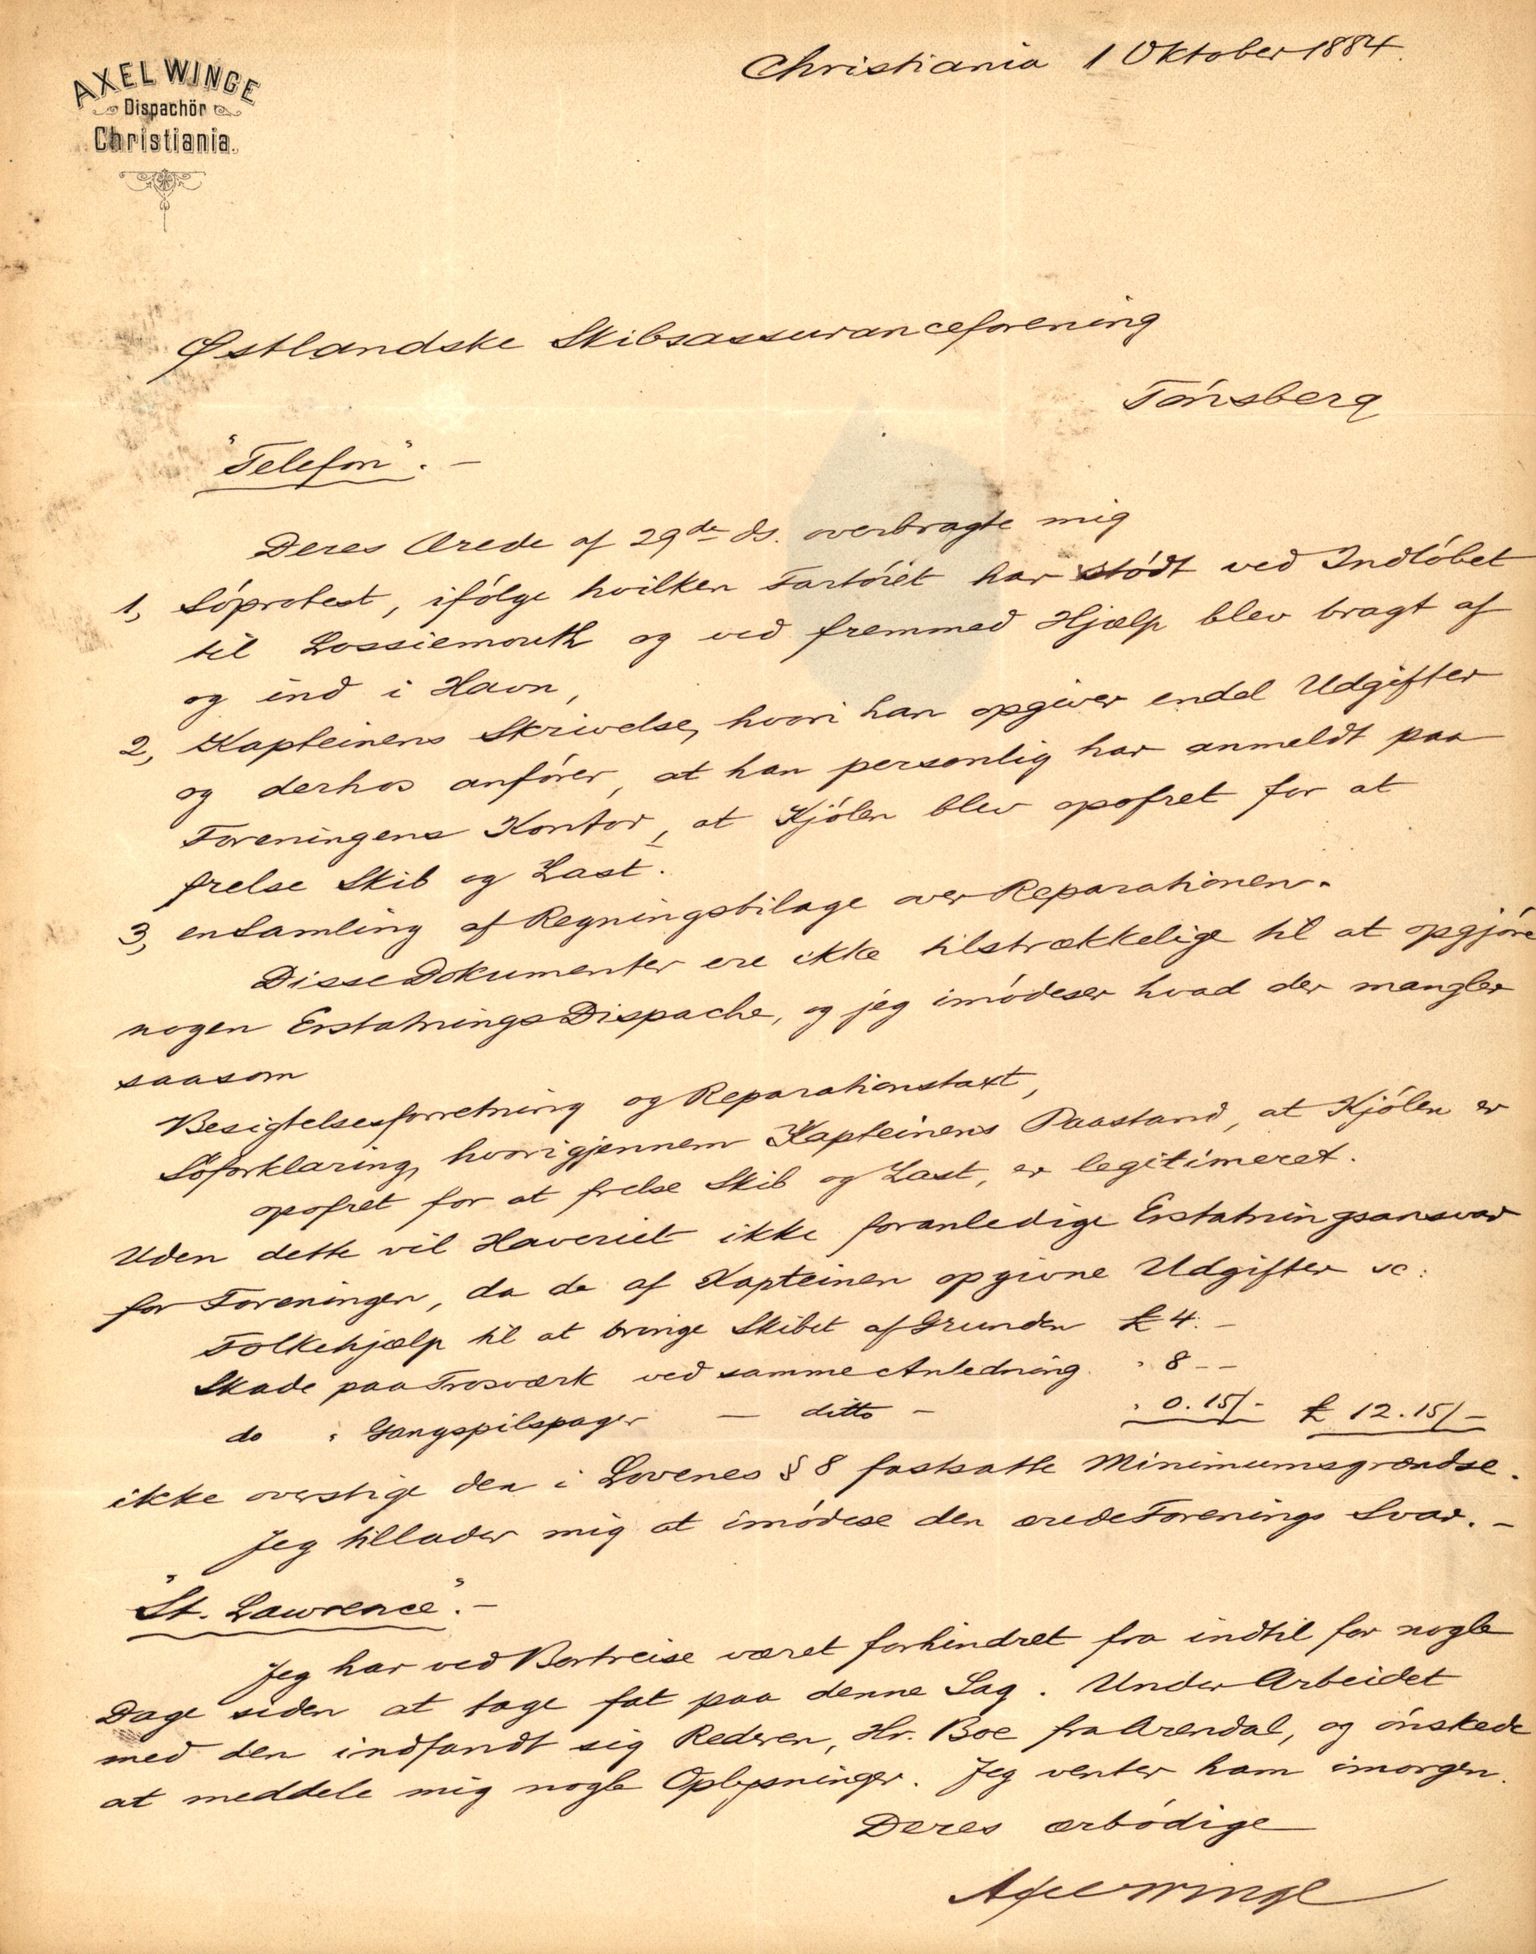 AXEL WINGE
Dispachör
Christiania.
Christiania 1 Oktober 1884.
Østlandske Skibsassuranceforening
Tönsberg
"Telefon". —
Deres Ærede af 29de ds. overbragte mig
1, Söprotest, ifölge hvilken Fartöiet har stödt ved Indlöbet
til Lossiemouth og ved fremmed Hjælp blev bragt af
og ind i Havn,
2, Kapteinens Skrivelse, hvori han opgiver endel Udgifter
og derhos anförer, at han personlig har anmeldt paa
Foreningens Kontor, at Kjölen blev opofret for at
frelse Skib og Last.
3, en Samling af Regningsbilage over Reparationen.
Disse Dokumenter ere ikke tilstrækkelige til at opgjöre
nogen Erstatnings Dispache, og jeg imödeser hvad der mangler
saasom
Besigtelsesforretning og Reparationstaxt,
Söforklaring, hvorigjennem Kapteinens Paastand, at Kjölen er
opofret for at frelse Skib og Last, er legitimeret.
Uden dette vil Haveriet ikke foranledige Erstatningsansvar
for Foreningen, da de af Kapteinen opgivne Udgifter sc:
Folkehjælp til at bringe Skibet af Grunden £ 4. —
Skade paa Trosværk ved samme Anledning " 8 - -
do " Gangspilspager — ditto — " 0.15/- £ 12.15/-
ikke overstige den i Lovenes § 8 fastsatte Minimumsgrændse.
Jeg tillader mig at imödese den ærede Forenings Svar. —
"St. Lawrence". —
Jeg har ved Bortreise været forhindret fra indtil for nogle
Dage siden at tage fat paa denne Sag. Under Arbeidet
med den indfandt sig Rederen, Hr. Boe fra Arendal, og önskede
at meddele mig nogle Oplysninger. Jeg venter ham imorgen.
Deres ærbödige
Axel Winge